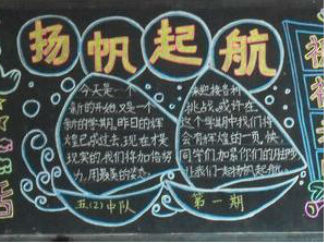 扬帆起航
今天是一个
新的开始,又是一个
新的学期。昨日的辉
煌已成过去,现在才是
现实的,我们将加倍努
力,用最美的姿态
来迎接胜利
挑战。或许在
这个学期中我们将
会有辉煌的一页,快
同学们加紧你们的脚步
让我们一起扬帆起航。
五(2)中队
第一期